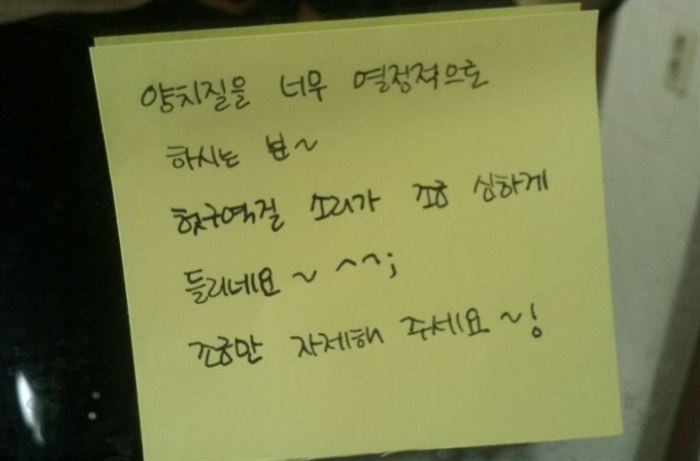 양치질을 너무 열정적으로
하시는 분~
헛구역걸 소리가 조금 심하게
들리네요~ ^^;
조금만 자제해 주세요~!